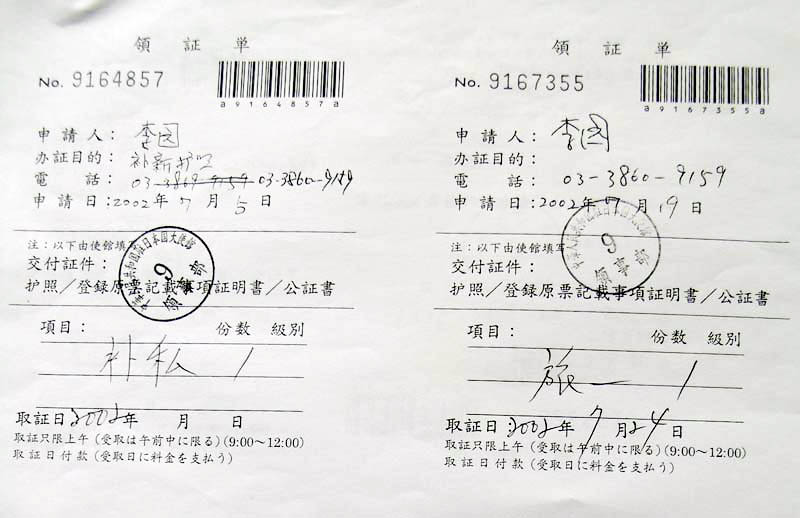 領 証 単
No. 9164857
a91648570a
申 請 人： 李国
办証目的： 补新护照
電 話： 03-3869-9159 03-3860-9159
申 請 日：2002 年 7 月 5 日
注：以下由使館填写
交付証件：
护照／登録原票記載事項証明書／公証書
中華人民共和国駐日本国大使館
9
領事部
項目： 份数 級別
补私 1
取証日：2002 年 月 日
取証只限上午 (受取は午前中に限る) (9:00～12:00)
取 証 日 付 款 (受取日に料金を支払う)
領 証 単
No. 9167355
a9167355a
申 請 人： 李国
办証目的：
電 話： 03-3860-9159
申 請 日：2002 年 7 月 19 日
注：以下由使館填写
交付証件：
护照／登録原票記載事項証明書／公証書
中華人民共和国駐日本国大使館
9
領事部
項目： 份数 級別
旅一 1
取証日：2002 年 7 月 24 日
取証只限上午 (受取は午前中に限る) (9:00～12:00)
取 証 日 付 款 (受取日に料金を支払う)